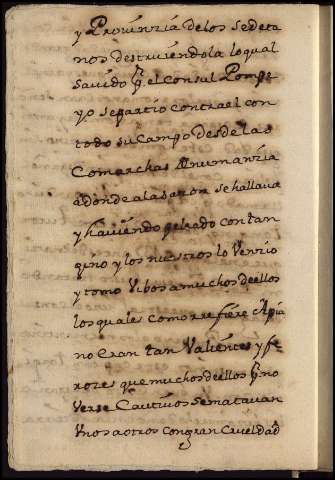 y Provinzia de los sedeta
nos destruiendola lo qual
savido p̱r el Consul Pompe
yo se partio contra el con
todo su campo desde las
Comarchas A Numanzia
adonde a la sazon se hallava
y haviendo peleado con tan
gino y los nuestros lo Venzio
y tomo Vibos a muchos de ellos
los quales como rrefiere Apia
no Eran tan Valientes y fe
rozes que muchos de ellos p̱r no
Verse Cautivos se matavan
Vnos a otros con gran Crueldad